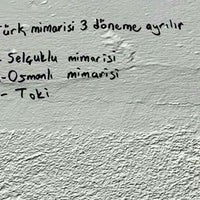 Türk mimarisi 3 döneme ayrılır
- Selçuklu mimarisi
- Osmanlı mimarisi
- Toki